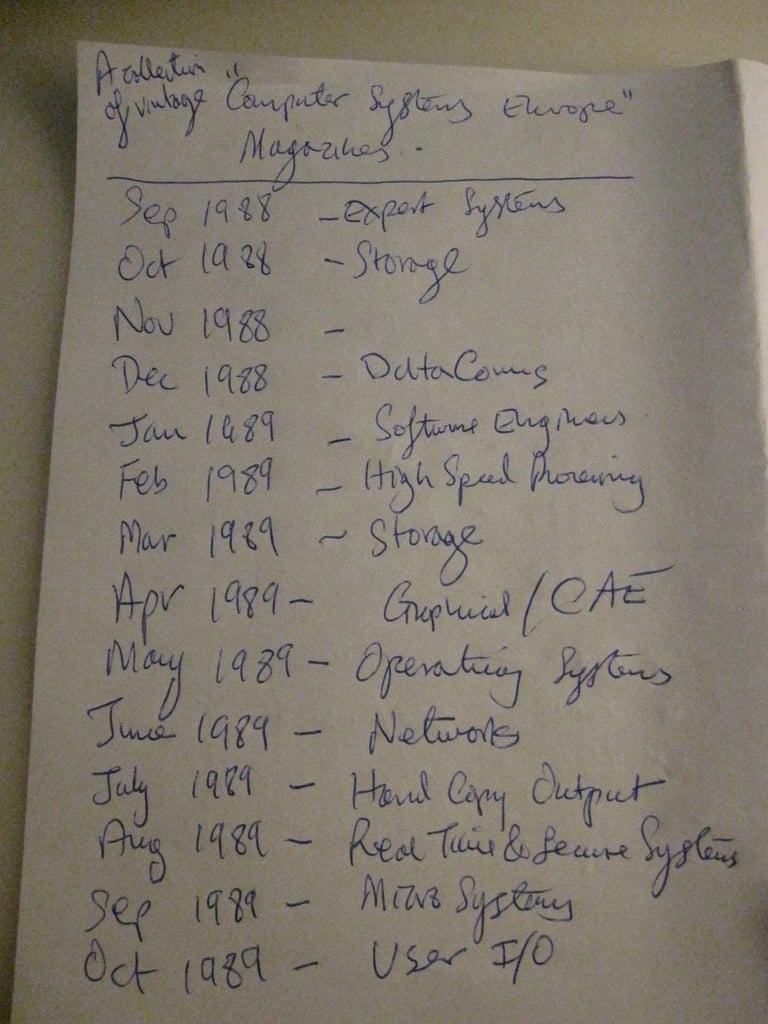 A collection
of vintage "Computer Systems Europe"
Magazines.
Sep 1988 - Expert Systems
Oct 1988 - Storage
Nov 1988 -
Dec 1988 - DataComms
Jan 1989 - Software Engineers
Feb 1989 - High Speed Processing
Mar 1989 ~ Storage
Apr 1989 - Graphical / CAE
May 1989 - Operating Systems
June 1989 - Networks
July 1989 - Hard Copy Output
Aug 1989 - Real Time & Secure Systems
Sep 1989 - Micro Systems
Oct 1989 - User I/O